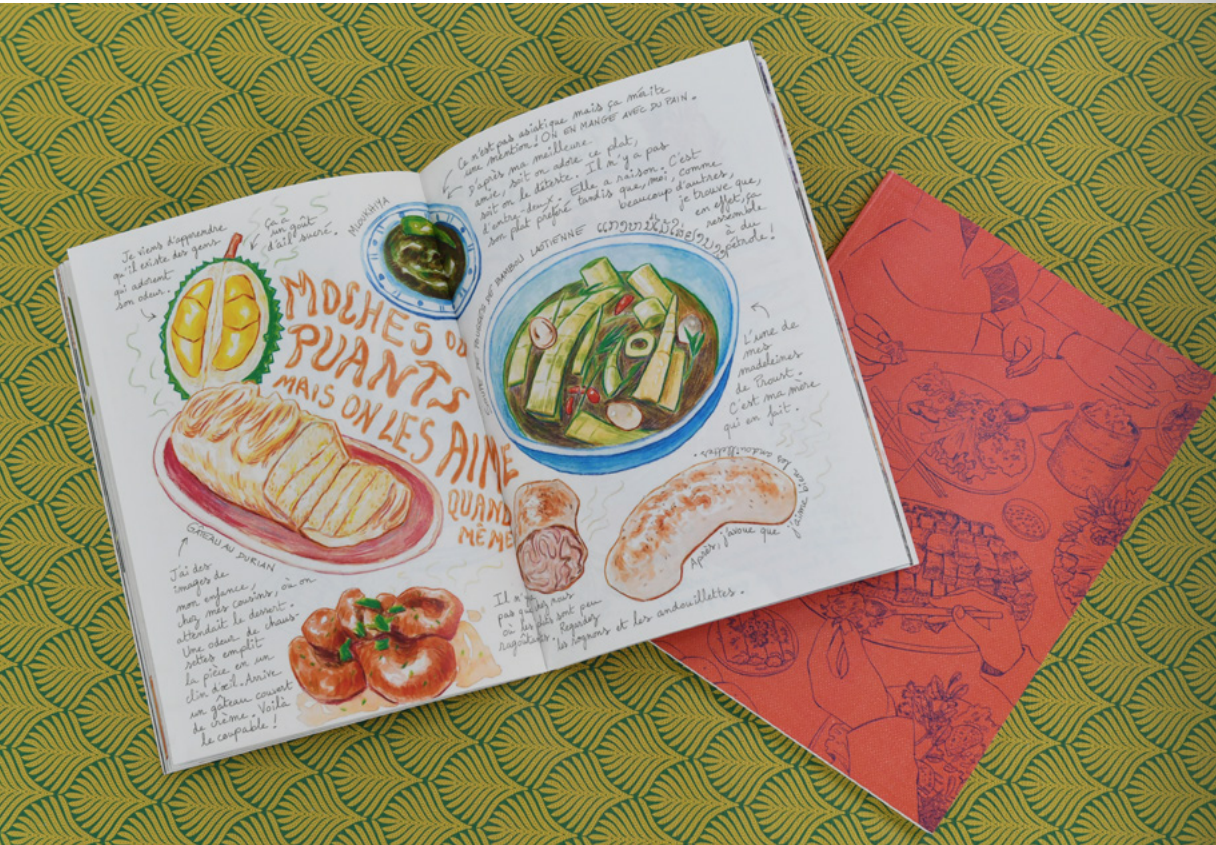 Je viens d'apprendre
qu'il existe des gens
qui adorent
son odeur.
ça a
un goût
d'ail sucré.
MLOUKHIYA
MOCHES OU
PUANTS
MAIS ON LES AIME
QUAND
MÊME
GÂTEAU AU DURIAN
J'ai des
images de
mon enfance,
chez mes cousins, où on
attendait le dessert.
Une odeur de chaus-
settes emplit
la pièce en un
clin d'œil. Arrive
un gâteau couvert
de crème. Voilà
le coupable !
Ce n'est pas asiatique mais ça mérite
une mention ! ON EN MANGE AVEC DU PAIN.
D'après ma meilleure
amie, soit on adore ce plat,
soit on le déteste. Il n'y a pas
d'entre-deux. Elle a raison. C'est
son plat préféré tandis que, moi, comme
beaucoup d'autres,
je trouve que,
en effet, ça
ressemble
à du
pétrole !
DE BAMBOU LAOTIENNE
L'une de
mes
madeleines
de Proust.
C'est ma mère
qui en fait.
Après, j'avoue que j'aime bien les andouillettes.
Il n'y a
pas que chez nous
où les plats sont peu
ragoûtants. Regardez
les rognons et les andouillettes.